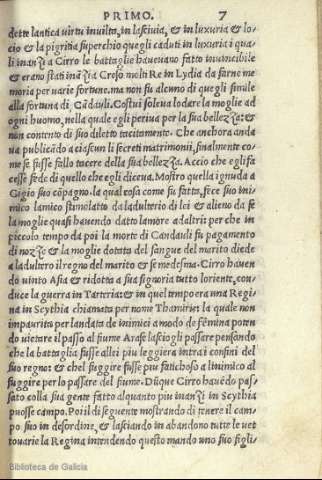 PRIMO. 7
dette lantica virtu invilita, in lascivia, & in luxuria & lo-
cio & la pigritia superchio que gli caduti in luxuria i qua-
li inanzi a Cirro le battaglie havevano fatto invincibile
& erano stati inanzi a Creso molti Re in Lydia da farne me
moria per varie fortune. ma non fu alcuno di quegli simile
alla fortuna di Cādauli. Costui soleva lodare la moglie ad
ogni huomo, nella quale egli periva per la sua bellezza: &
non contento di suo diletto tacitamente. Che anchora anda
va publicādo a ciascun li secreti matrimonii, finalmente co-
me se fusse fallo tacere della sua bellezza. Accio che egli fa
cesse fede di quello che egli diceva. Mostro quella ignuda a
Gigio suo cōpagno. la qual cosa come fu fatto, fece suo ini-
mico lamico stimolatto da ladulterio di lei & alieno da se
la moglie quasi havendo datto lamore ad altri: per che in
piccolo tempo da poi la morte di Candauli fu pagamento
di nozze & la moglie dotata del sangue del marito diede
a ladultero il regno del marito & se medesma. Cirro haven-
do vinto Asia & ridotta a sua signoria tutto loriente, con-
duce la guerra in Tarteria: & in quel tempo era una Regi
na in Scythia chiamata per nome Thamiris: la quale non
impaurito per landata de inimici a modo de fēmina poten
do vietare il passo al fiume Arase lasciogli passare pensando
che la battaglia fusse a lei piu leggiera intra i confini del
suo regno: & chel fuggire fusse piu fatichoso a linimico al
fuggire per lo passare del fiume. Dūque Cirro havēdo pas-
sato colla sua gente fatto alquanto piu inanzi in Scythia
puosse campo. Poi il di seguente mostrando di tenere il cam-
po suo in desordine, & lasciando in abandono tutte le vet
tovarie la Regina intendendo questo mando uno suo figli-
Biblioteca de Galicia